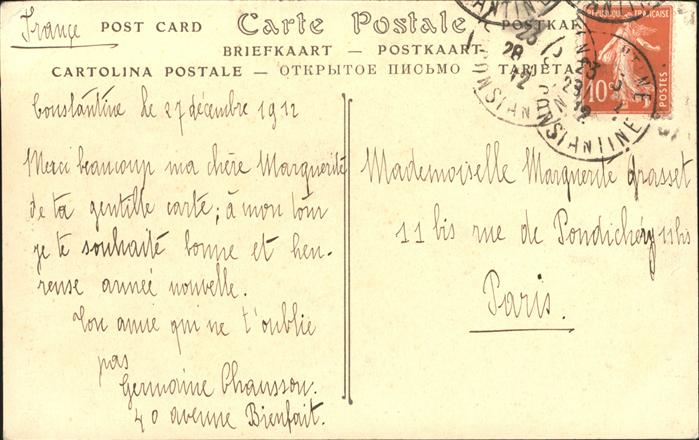 France
POST CARD Carte Postale POSTKARTE
BRIEFKAART — POSTKAART
CARTOLINA POSTALE — ОТКРЫТОЕ ПИСЬМО — TARJETA
RÉPUBLIQUE FRANÇAISE
10c
POSTES
CONSTANTINE
Constantine le 27 décembre 1912
Merci beaucoup ma chère Marguerite
de ta gentille carte; à mon tour
je te souhaite bonne et heu-
reuse année nouvelle.
Ton amie qui ne t'oublie
pas
Germaine Chausson.
40 avenue Bienfait.
Mademoiselle Marguerite Grasset
11 bis rue de Pondichéry 11 bis
Paris.